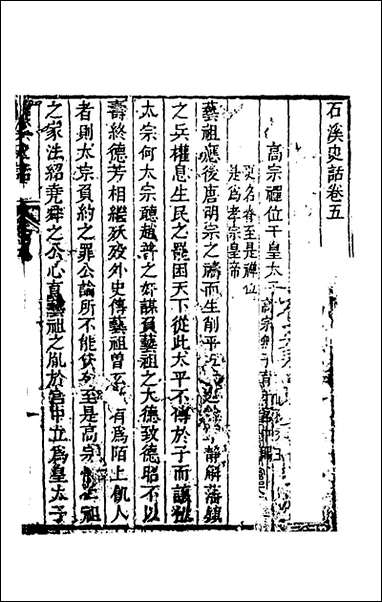 石溪史話卷五
高宗禪位于皇太子高宗無子育
更名眘至是禪位
是為孝宗皇帝
藝祖應後唐明宗之禱而生削平 靜解藩鎮
之兵權息生民之罷困天下從此太平不傳於子而讓
太宗何太宗聽趙普之奸謀負藝祖之大德致德昭不以
壽終德芳相繼殀歿外史傳藝祖曾 有為陌上飢人
者則太宗負約之罪公論所不能 至是高宗 祖
之家法紹堯舜之公心育藝祖之胤於宮中立為皇太子